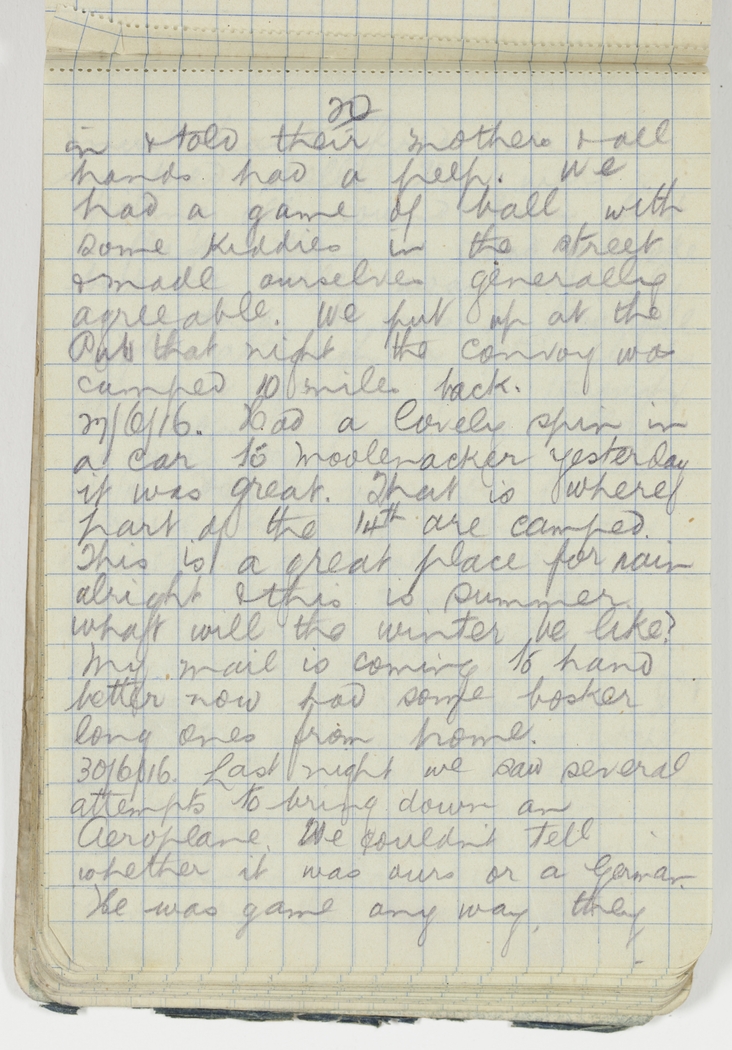 20
in & told their mothers & all
hands had a peep. We
had a game of ball with
some kiddies in the street
& made ourselves generally
agreeable. We put up at the
Pub that night the convoy was
camped 10 miles back.
27/6/16. Had a lovely spin in
a car to Moolenacker yesterday
it was great. That is where
part of the 14th are camped.
This is a great place for rain
alright & this is summer.
what will the winter be like?
My mail is coming to hand
better now had some bosker
long ones from home.
30/6/16. Last night we saw several
attempts to bring down an
Aeroplane. We couldn't tell
whether it was ours or a German.
He was game any way, they